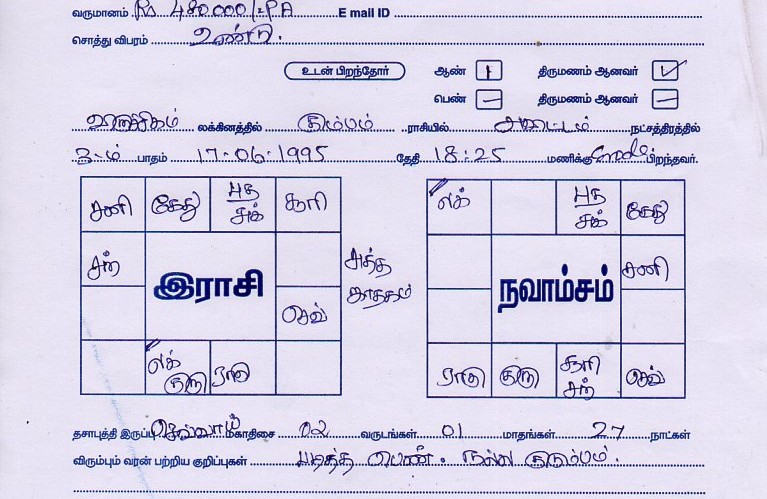 வருமானம் Rs 480.000/-PA E mail ID
சொத்து விபரம் உண்டு.
உடன் பிறந்தோர் ஆண் 1 திருமணம் ஆனவர் ✓
பெண் — திருமணம் ஆனவர் —
விருச்சிகம் லக்கினத்தில் கும்பம் ராசியில் அவிட்டம் நட்சத்திரத்தில்
3-ம் பாதம் 17-06-1995 தேதி 18:25 மணிக்கு பிறந்தவர்.
சனி கேது புத சுக் சூரி
சந்
இராசி
செவ்
லக் குரு ராகு
சுத்த ஜாதகம்
லக் புத சுக் கேது
சனி
நவாம்சம்
ராகு குரு சூரி சந் செவ்
தசாபுத்தி இருப்பு செவ்வாய் மகாதிசை 02 வருடங்கள் 01 மாதங்கள் 27 நாட்கள்
விரும்பும் வரன் பற்றிய குறிப்புகள் படித்த பெண். நல்ல குடும்பம்.